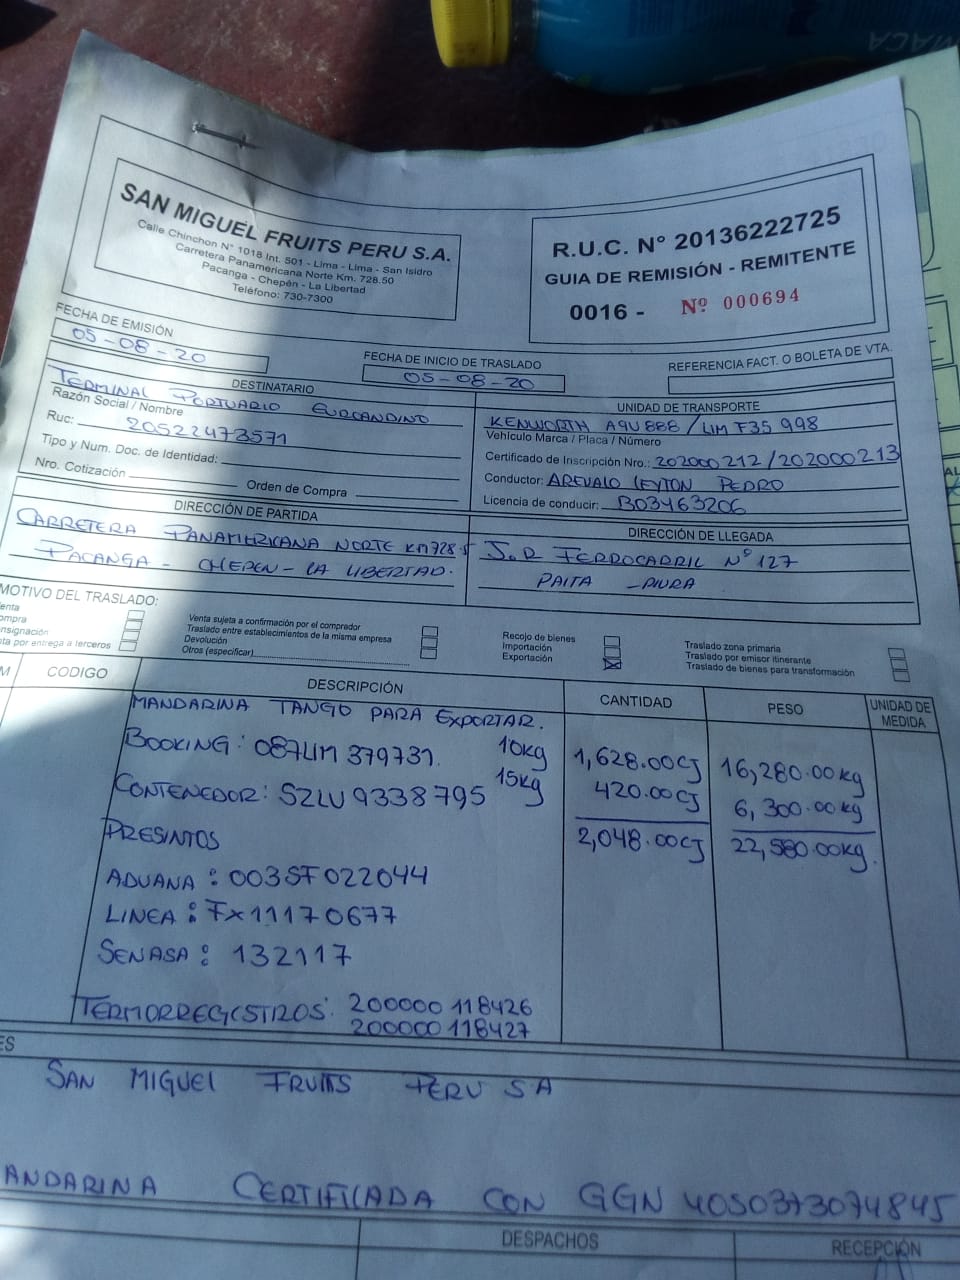 SAN MIGUEL FRUITS PERU S.A.
Calle Chinchon N° 1018 Int. 501 - Lima - Lima - San Isidro
Carretera Panamericana Norte Km. 728.50
Pacanga - Chepén - La Libertad
Teléfono: 730-7300
R.U.C. N° 20136222725
GUIA DE REMISIÓN - REMITENTE
0016 - Nº 000694
FECHA DE EMISIÓN
05-08-20
FECHA DE INICIO DE TRASLADO
05-08-20
REFERENCIA FACT. O BOLETA DE VTA.
DESTINATARIO
TERMINAL PORTUARIO EUROANDINO
Razón Social / Nombre
Ruc: 20522473571
Tipo y Num. Doc. de Identidad:
Nro. Cotización
Orden de Compra
UNIDAD DE TRANSPORTE
KENWORTH A9U888 / LIM F35 998
Vehículo Marca / Placa / Número
Certificado de Inscripción Nro.: 202000212/202000213
Conductor: AREVALO LEYTON PEDRO
Licencia de conducir: B03463206
DIRECCIÓN DE PARTIDA
CARRETERA PANAMERICANA NORTE KM728.5
PACANGA - CHEPEN - LA LIBERTAD.
DIRECCIÓN DE LLEGADA
J.R FERROCARRIL Nº 127
PAITA - PIURA
MOTIVO DEL TRASLADO:
enta
ompra
nsignación
ta por entrega a terceros
Venta sujeta a confirmación por el comprador
Traslado entre establecimientos de la misma empresa
Devolución
Otros (especificar)
Recojo de bienes
Importación
Exportación
Traslado zona primaria
Traslado por emisor itinerante
Traslado de bienes para transformación
M
CODIGO
DESCRIPCIÓN
CANTIDAD
PESO
UNIDAD DE MEDIDA
MANDARINA TANGO PARA EXPORTAR.
BOOKING: 087LIM379731. 10kg 1,628.00CJ 16,280.00kg
CONTENEDOR: SZLU9338795 15kg 420.00CJ 6,300.00kg
PRESINTOS 2,048.00CJ 22,580.00kg.
ADUANA: 003SF022044
LINEA: FX11170677
SENASA: 132117
TERMORREGISTROS: 200000118426
200000118427
ES
SAN MIGUEL FRUITS PERU SA
ANDARINA CERTIFICADA CON GGN 4050373074845
DESPACHOS
RECEPCIÓN